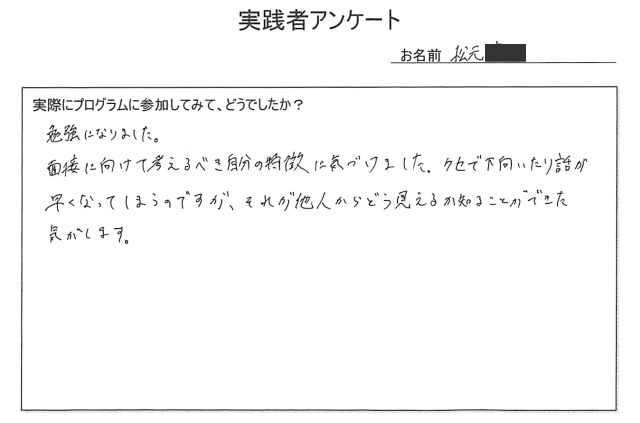 実践者アンケート
お名前 松元
実際にプログラムに参加してみて、どうでしたか？
勉強になりました。
面接に向けて考えるべき自分の特徴に気づけました。クセで下向いたり話が
早くなってしまうのですが、それが他人からどう見えるか知ることができた
気がします。